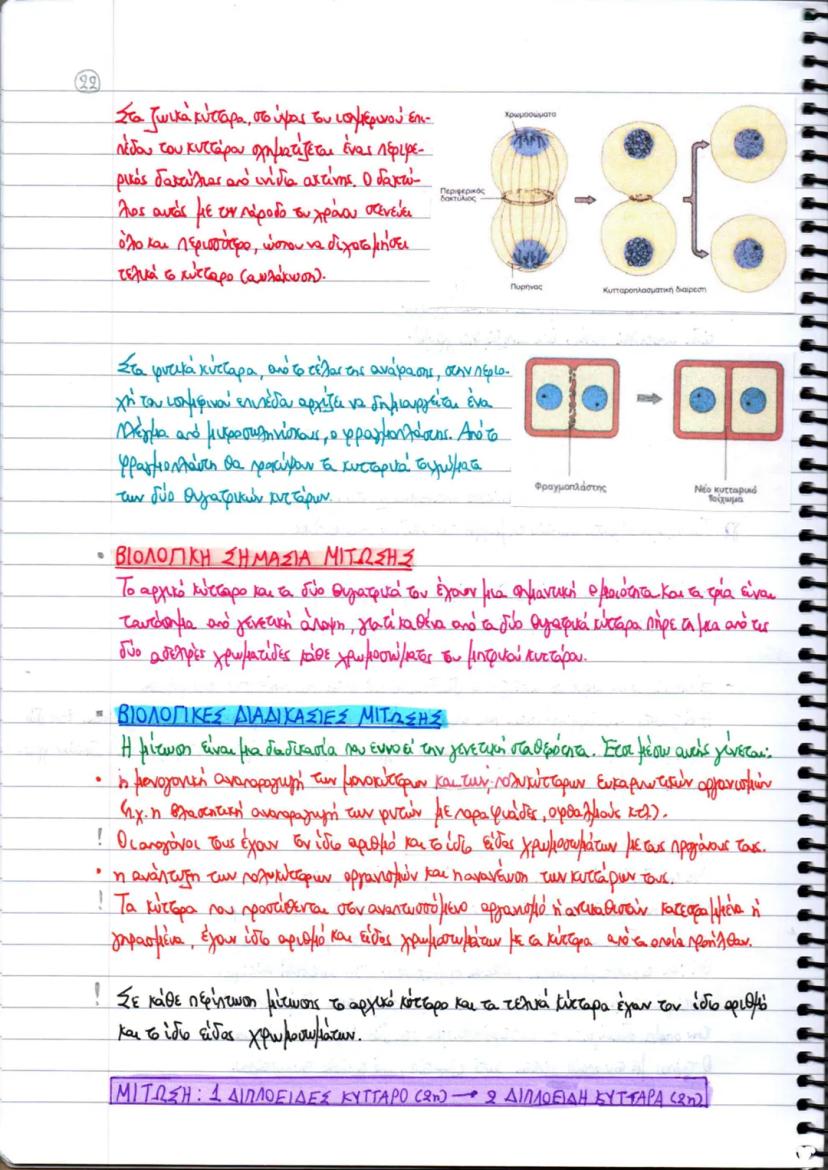 22
Στα ζωικά κύτταρα, στο ύψος του ισημερινού επι-
πέδου του κυττάρου σχηματίζεται ένας περιφε-
ρικός δακτύλιος από ινίδια ακτίνης. Ο δακτύ-
λιος αυτός με την πάροδο του χρόνου στενεύει
όλο και περισσότερο, ώσπου να διχοτομήσει
τελικά το κύτταρο (αυλάκωση).
Χρωμοσώματα
Περιφερικός
δακτύλιος
Πυρήνας
Κυτταροπλασματική διαίρεση
Στα φυτικά κύτταρα, από το τέλος της ανάφασης, στην περιο-
χή του ισημερινού επιπέδου αρχίζει να δημιουργείται ένα
πλέγμα από μικροσωληνίσκους, ο φραγμοπλάστης. Από το
φραγμοπλάστη θα προκύψουν τα κυτταρικά τοιχώματα
των δύο θυγατρικών κυττάρων.
Φραγμοπλάστης
Νέο κυτταρικό
τοίχωμα
• ΒΙΟΛΟΓΙΚΗ ΣΗΜΑΣΙΑ ΜΙΤΩΣΗΣ
Το αρχικό κύτταρο και τα δύο θυγατρικά του έχουν μια σημαντική ομοιότητα. Και τα τρία είναι
ταυτόσημα από γενετική άποψη, γιατί καθένα από τα δύο θυγατρικά κύτταρα πήρε τη μια από τις
δύο αδελφές χρωματίδες κάθε χρωμοσώματος του μητρικού κυττάρου.
ΒΙΟΛΟΓΙΚΕΣ ΔΙΑΔΙΚΑΣΙΕΣ ΜΙΤΩΣΗΣ
Η μίτωση είναι μια διαδικασία που ευνοεί την γενετική σταθερότητα. Έτσι μέσω αυτής γίνεται:
• η μονογονική αναπαραγωγή των μονοκύτταρων και των πολυκύτταρων ευκαρυωτικών οργανισμών
(π.χ. η βλαστητική αναπαραγωγή των φυτών με παραφυάδες, οφθαλμούς κτλ).
! Οι απόγονοί τους έχουν τον ίδιο αριθμό και το ίδιο είδος χρωμοσωμάτων με τους προγόνους τους.
• η ανάπτυξη των πολυκύτταρων οργανισμών και η ανανέωση των κυττάρων τους.
! Τα κύτταρα που προστίθενται στον αναπτυσσόμενο οργανισμό ή αντικαθιστούν κατεστραμμένα ή
γηρασμένα, έχουν ίδιο αριθμό και είδος χρωμοσωμάτων με τα κύτταρα από τα οποία προήλθαν.
! Σε κάθε περίπτωση μίτωσης το αρχικό κύτταρο και τα τελικά κύτταρα έχουν τον ίδιο αριθμό
και το ίδιο είδος χρωμοσωμάτων.
ΜΙΤΩΣΗ: 1 ΔΙΠΛΟΕΙΔΕΣ ΚΥΤΤΑΡΟ (2n) → 2 ΔΙΠΛΟΕΙΔΗ ΚΥΤΤΑΡΑ (2n)